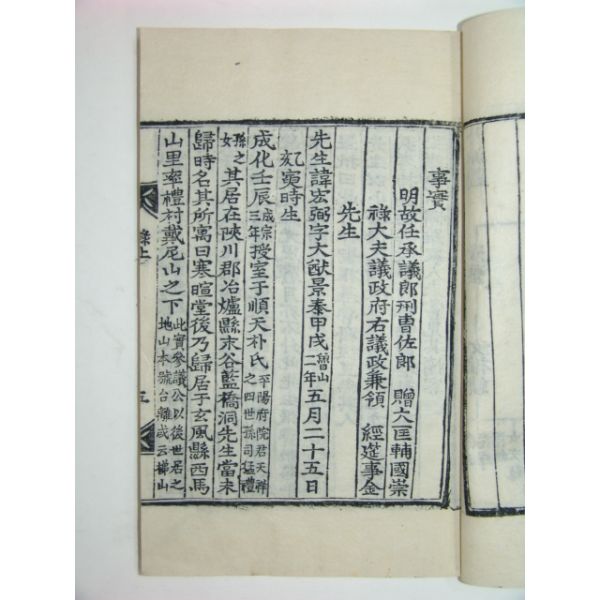 事實
明故任承議郎刑曹佐郎 贈大匡輔國崇
祿大夫議政府右議政兼領 經筵事金
先生
先生諱宏弼字大猷景泰甲戌魯山二年五月二十五日
寅時生
成化壬辰成宗三年授室于順天朴氏平陽府院君天祥之四世孫司猛禮
孫之女其居在陜川郡冶爐縣末谷藍橋洞先生當未
歸時名其所寓曰寒暄堂後乃歸居于玄風縣西馬
山里率禮村戴尼山之下此實參議公以後世居之地山本號台離或云梯山